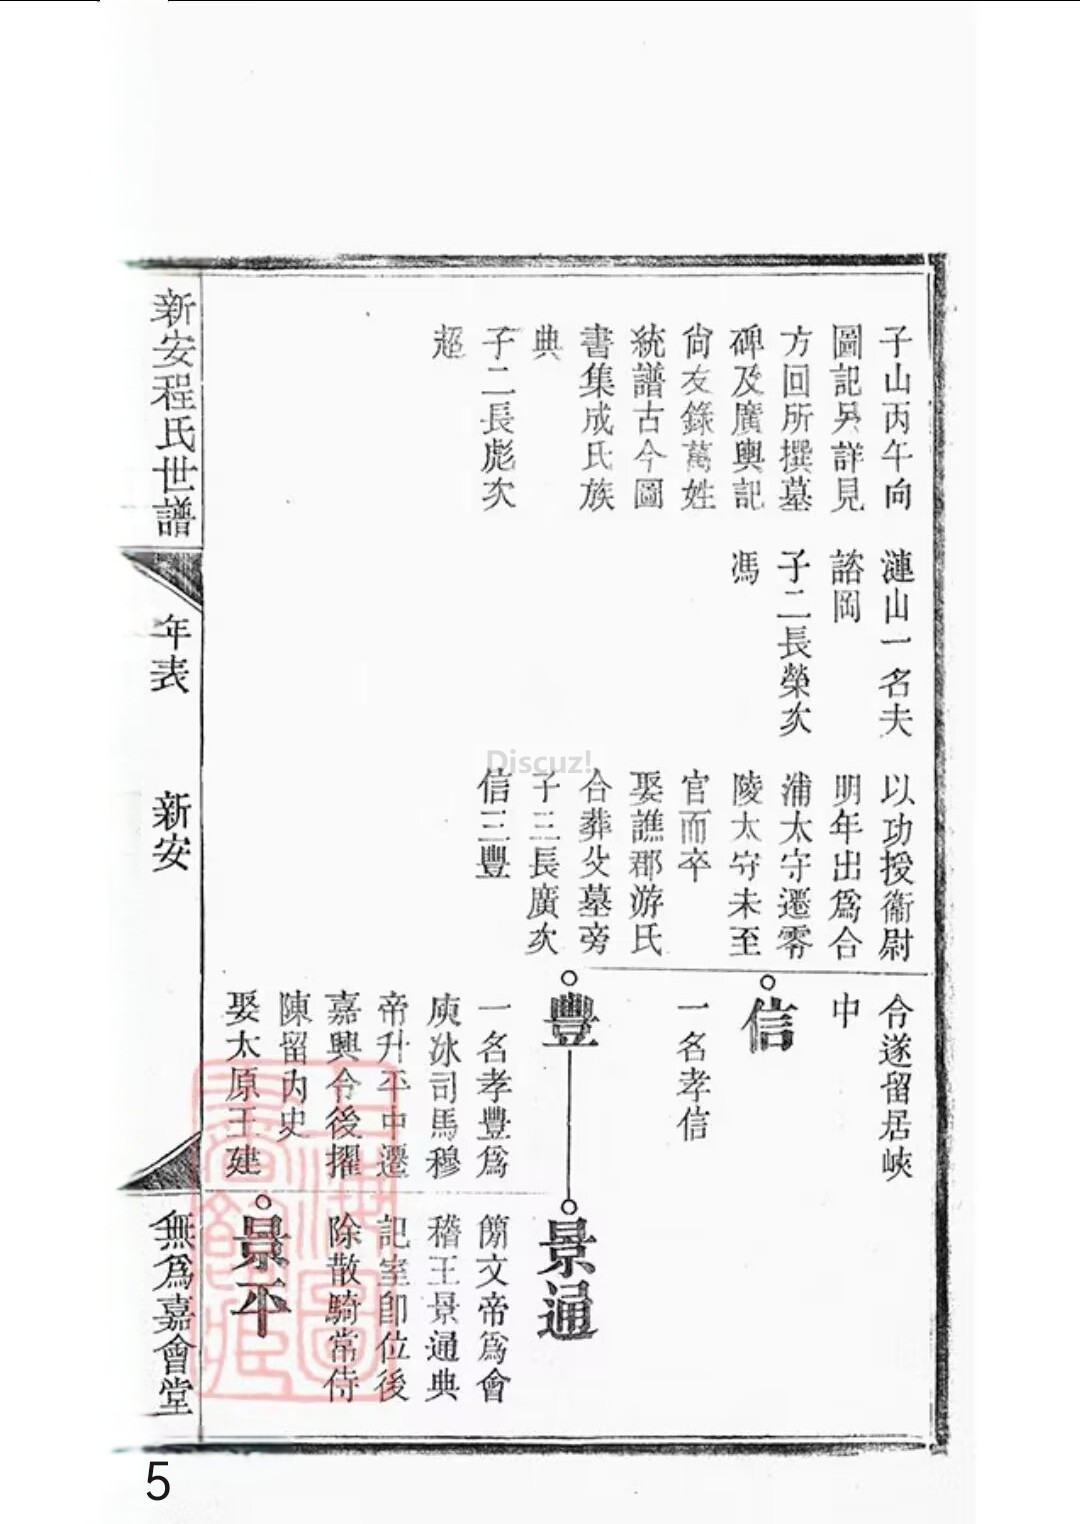 子山丙午向
圖記另詳見
方回所撰墓
碑及廣輿記
尙友錄萬姓
統譜古今圖
書集成氏族
典
子二長彪次
超
漣山一名夫
諮岡
子二長榮次
馮
以功授衞尉
明年出爲合
浦太守遷零
陵太守未至
官而卒
娶譙郡游氏
合葬父墓旁
子三長廣次
信三豐
令遂留居峽
中
信
一名孝信
豐
一名孝豐爲
庾冰司馬穆
帝升平中遷
嘉興令後擢
陳留內史
娶太原王建
景通
簡文帝爲會
稽王景通典
記室卽位後
除散騎常侍
景平
新安程氏世譜
年表
新安
無爲嘉會堂
Discuz!
5